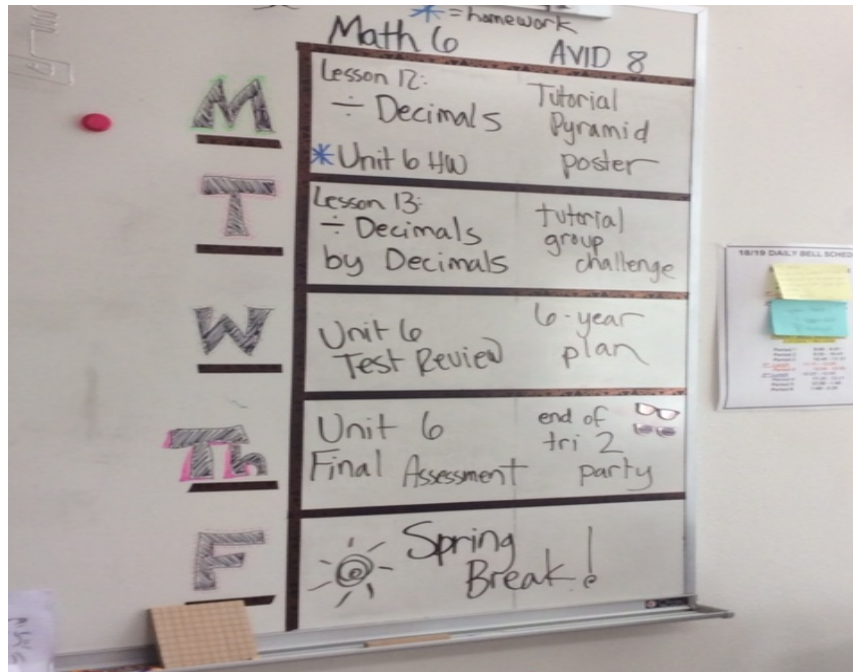 * = homework
Math 6
AVID 8
M
Lesson 12:
÷ Decimals
* Unit 6 HW
Tutorial
Pyramid
poster
T
Lesson 13:
÷ Decimals
by Decimals
tutorial
group
challenge
W
Unit 6
Test Review
6-year
plan
Th
Unit 6
Final Assessment
end of
tri 2
party
F
Spring
Break!
18/19 DAILY BELL SCHED